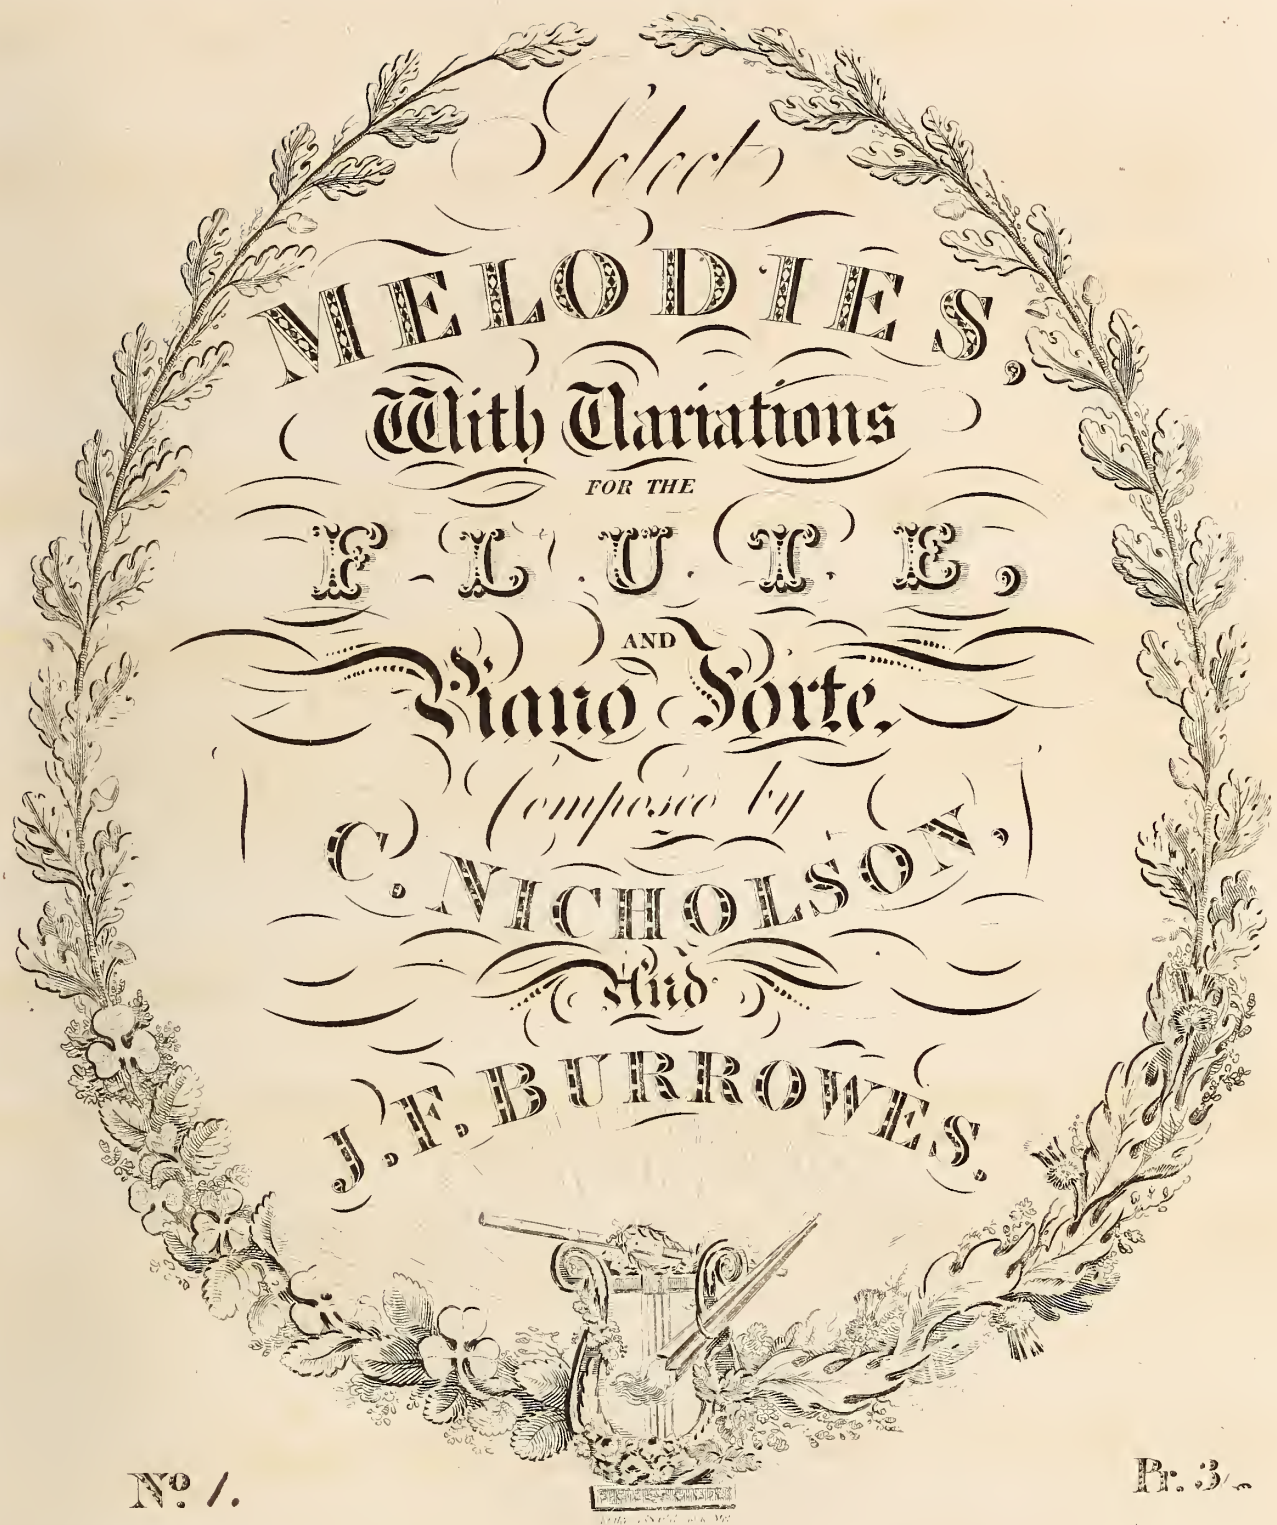 Select
MELODIES,
With Variations
FOR THE
FLUTE,
AND
Piano Forte.
Composed by
C. NICHOLSON.
And
J. F. BURROWES.
No. 1.
Pr. 3/-